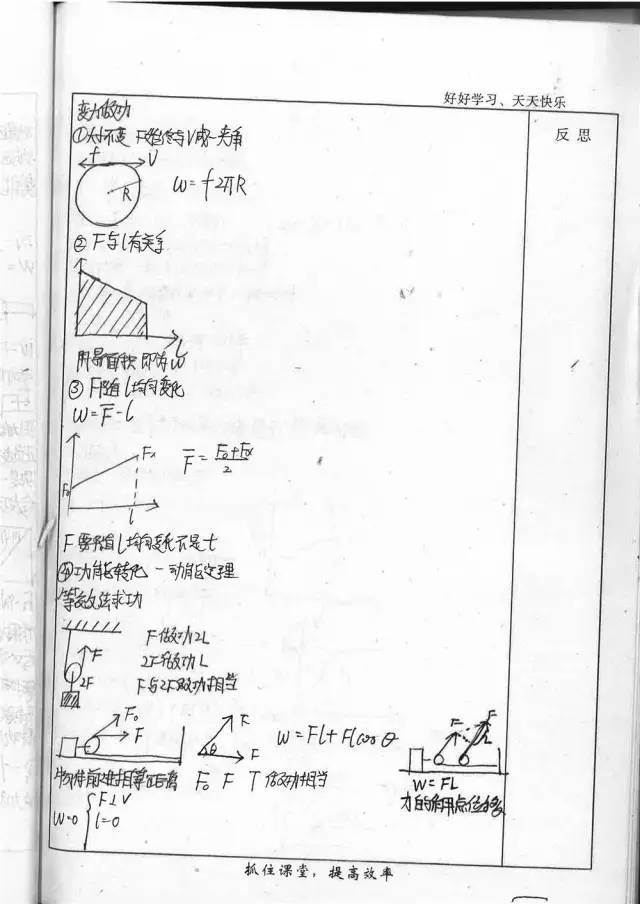 好好学习、天天快乐
反思
变力做功
①大小不变 F始终与V成一夹角
f V
R
W=f2πR
②F与l有关系
l
用图面积即为W
③F随l均匀变化
W=F̅-l
F₀ Fx l
F̅=(F₀+Fx)/2
F要随l均匀变化不是t
④功能转化-动能定理
等效法求功
F做功2L
F
2F做功L
2F
F与2F做功相当
F₀ F
F θ F
W=Fl+Flcosθ
F F L
物体前进相等距离 F₀ F T做功相当
W=FL
力的作用点位移
W=0 { F⊥V
l=0
抓住课堂，提高效率